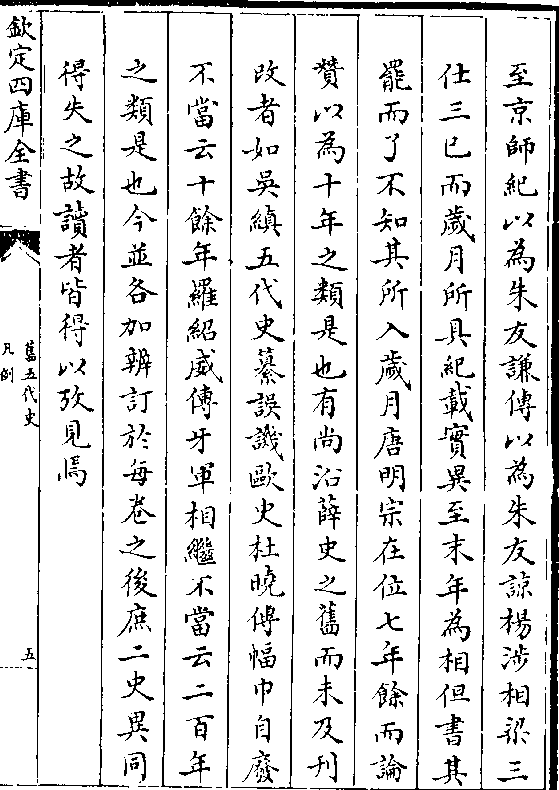 至京師紀以為朱友謙傳以為朱友諒楊涉相梁三
仕三已而歲月所具紀載實異至末年為相但書其
罷而了不知其所入歲月唐明宗在位七年餘而論
贊以為十年之類是也有尚沿薛史之舊而未及刊
改者如吳縝五代史纂誤譏歐史杜曉傳幅巾自廢
不當云十餘年羅紹威傳牙軍相繼不當云二百年
之類是也今並各加辨訂於每卷之後庶二史異同
得失之故讀者皆得以攷見焉
欽定四庫全書
舊五代史
凡例
五